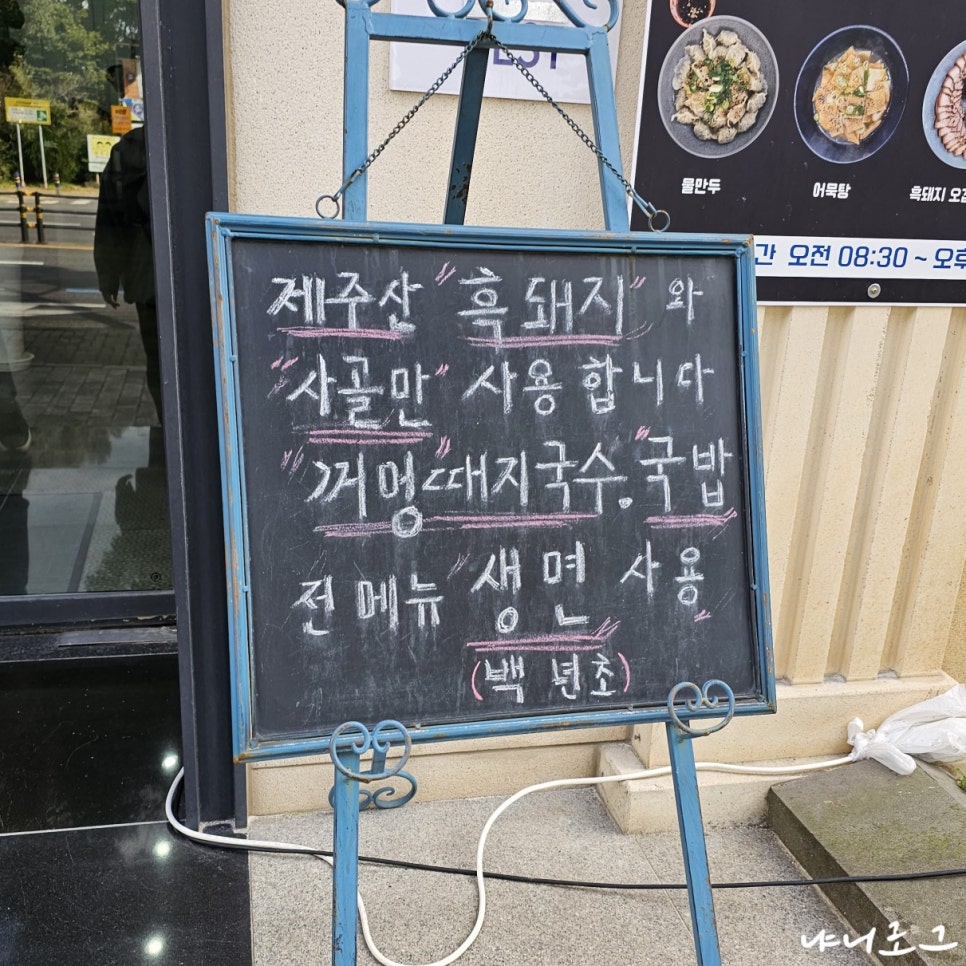 물만두
어묵탕
흑돼지 오
간 오전 08:30 ~ 오후
제주산 "흑돼지"와
"사골만" 사용합니다
"꺼멍"돼지국수. "국밥
전메뉴 "생면 사용"
(백년초)
냐니로그